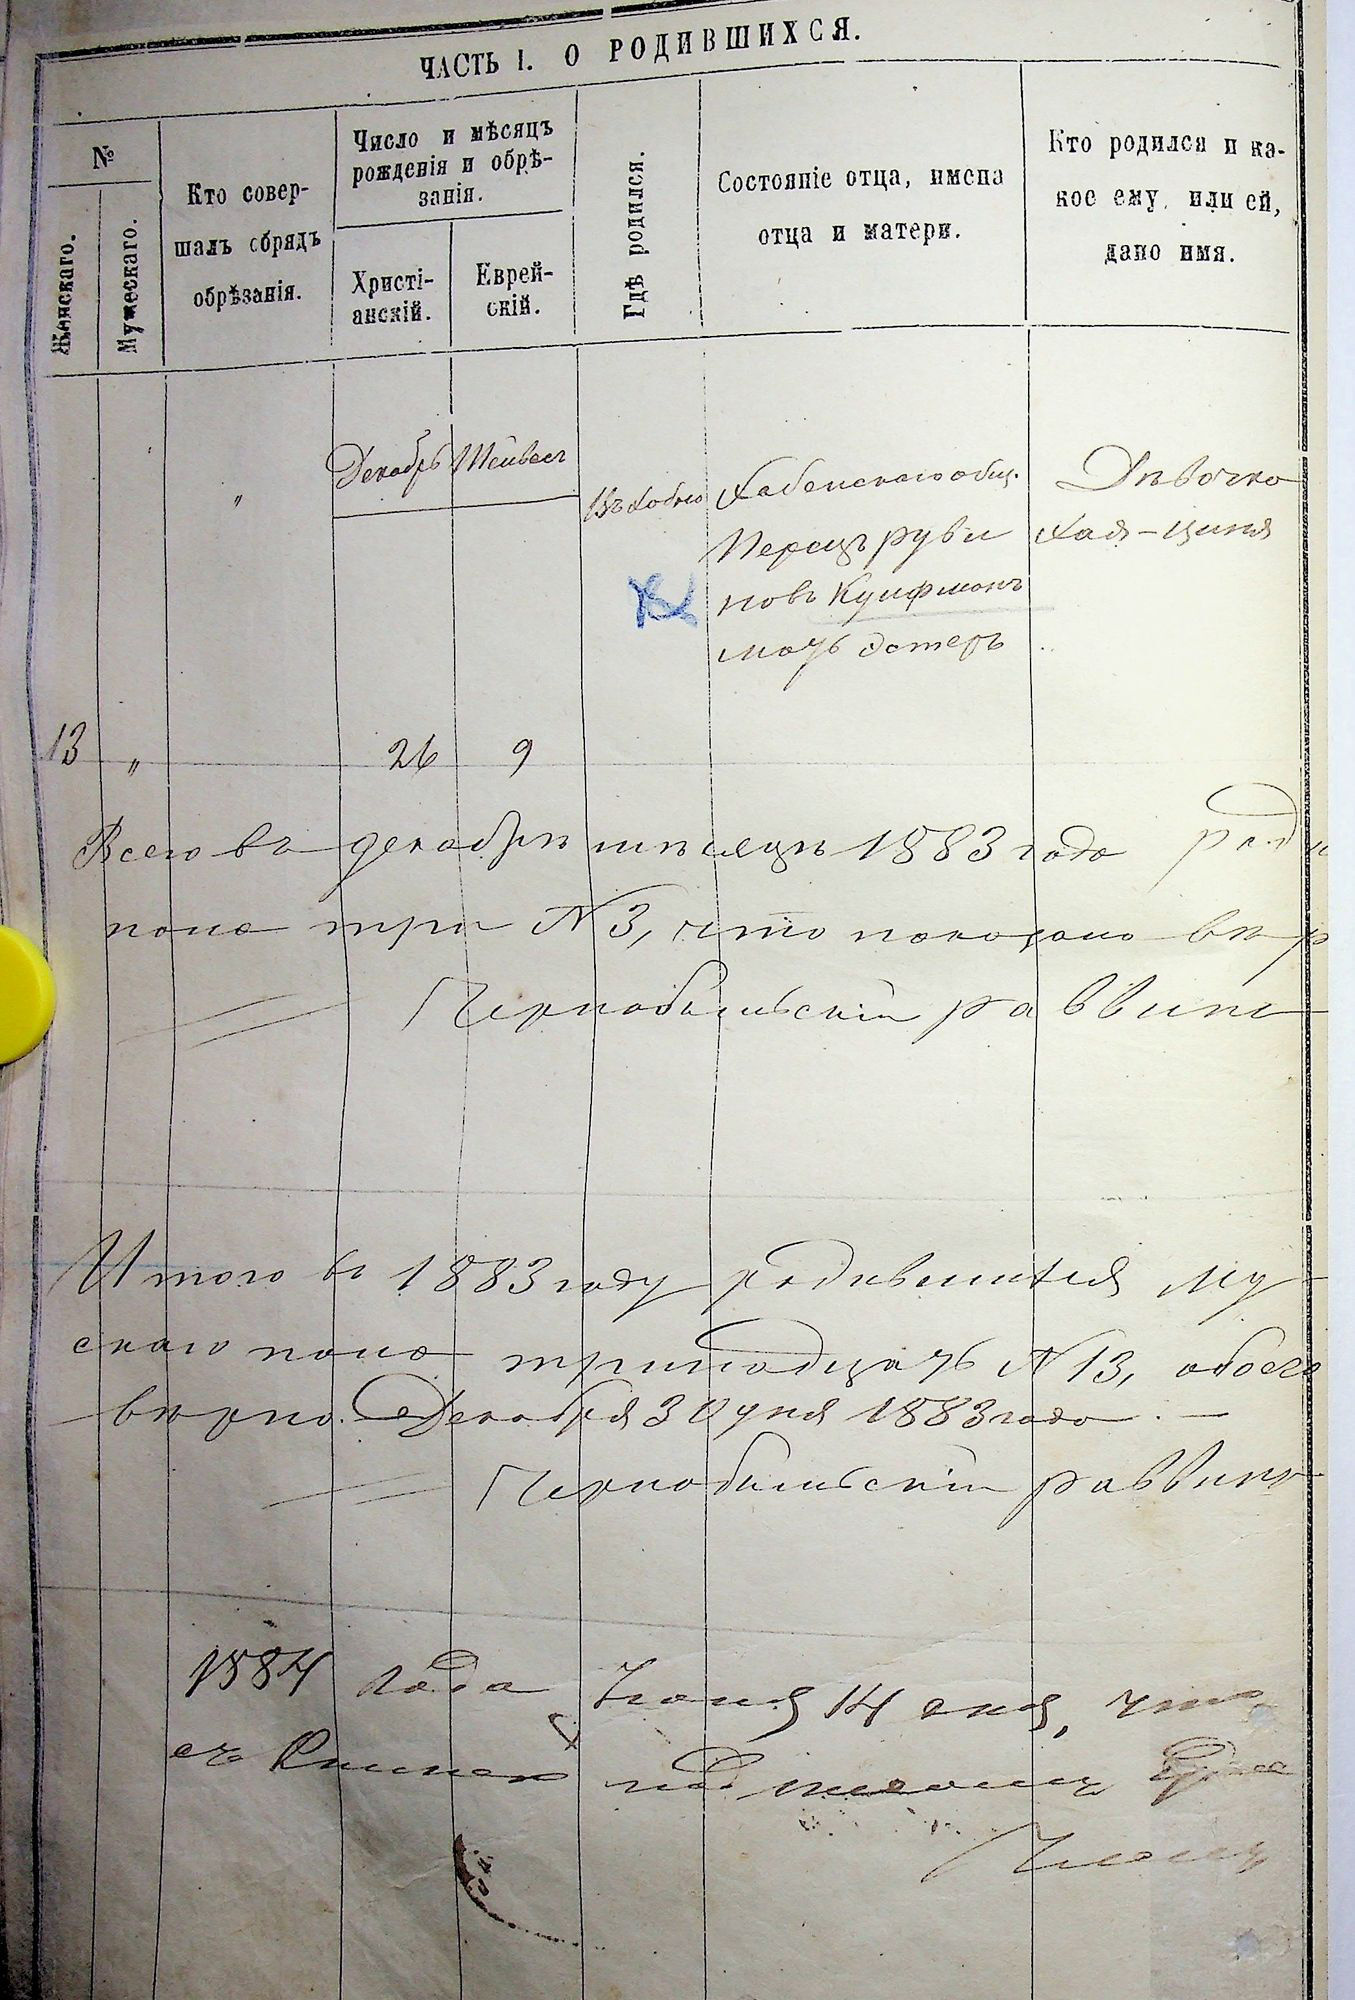 ЧАСТЬ I. О РОДИВШИХСЯ.
№
Женскаго.
Мужескаго.
Кто совер-
шалъ обрядъ
обрѣзанія.
Число и мѣсяцъ
рожденія и обрѣ-
занія.
Христі-
анскій.
Еврей-
скій.
Гдѣ родился.
Состояніе отца, имена
отца и матери.
Кто родился и ка-
кое ему, или ей,
дано имя.
"
Декабрь
Тейвес
Въ Хабно
Хабенскаго общ.
Перецъ Руви
новъ Куифманъ
мать Эстеръ
Дѣвочка
Хая-Циня
13 " 26 9
Всего въ декабрѣ мѣсяцѣ 1883 года роди
пола три N 3, что показано вѣр
Чернобыльскій раввинъ
Итого въ 1883 году родившихся му
скаго пола тринадцать N 13, обоего
вѣрно. Декабря 30 дня 1883 года. —
Чернобыльскій раввинъ
1884 года Іюня 14 дня, что